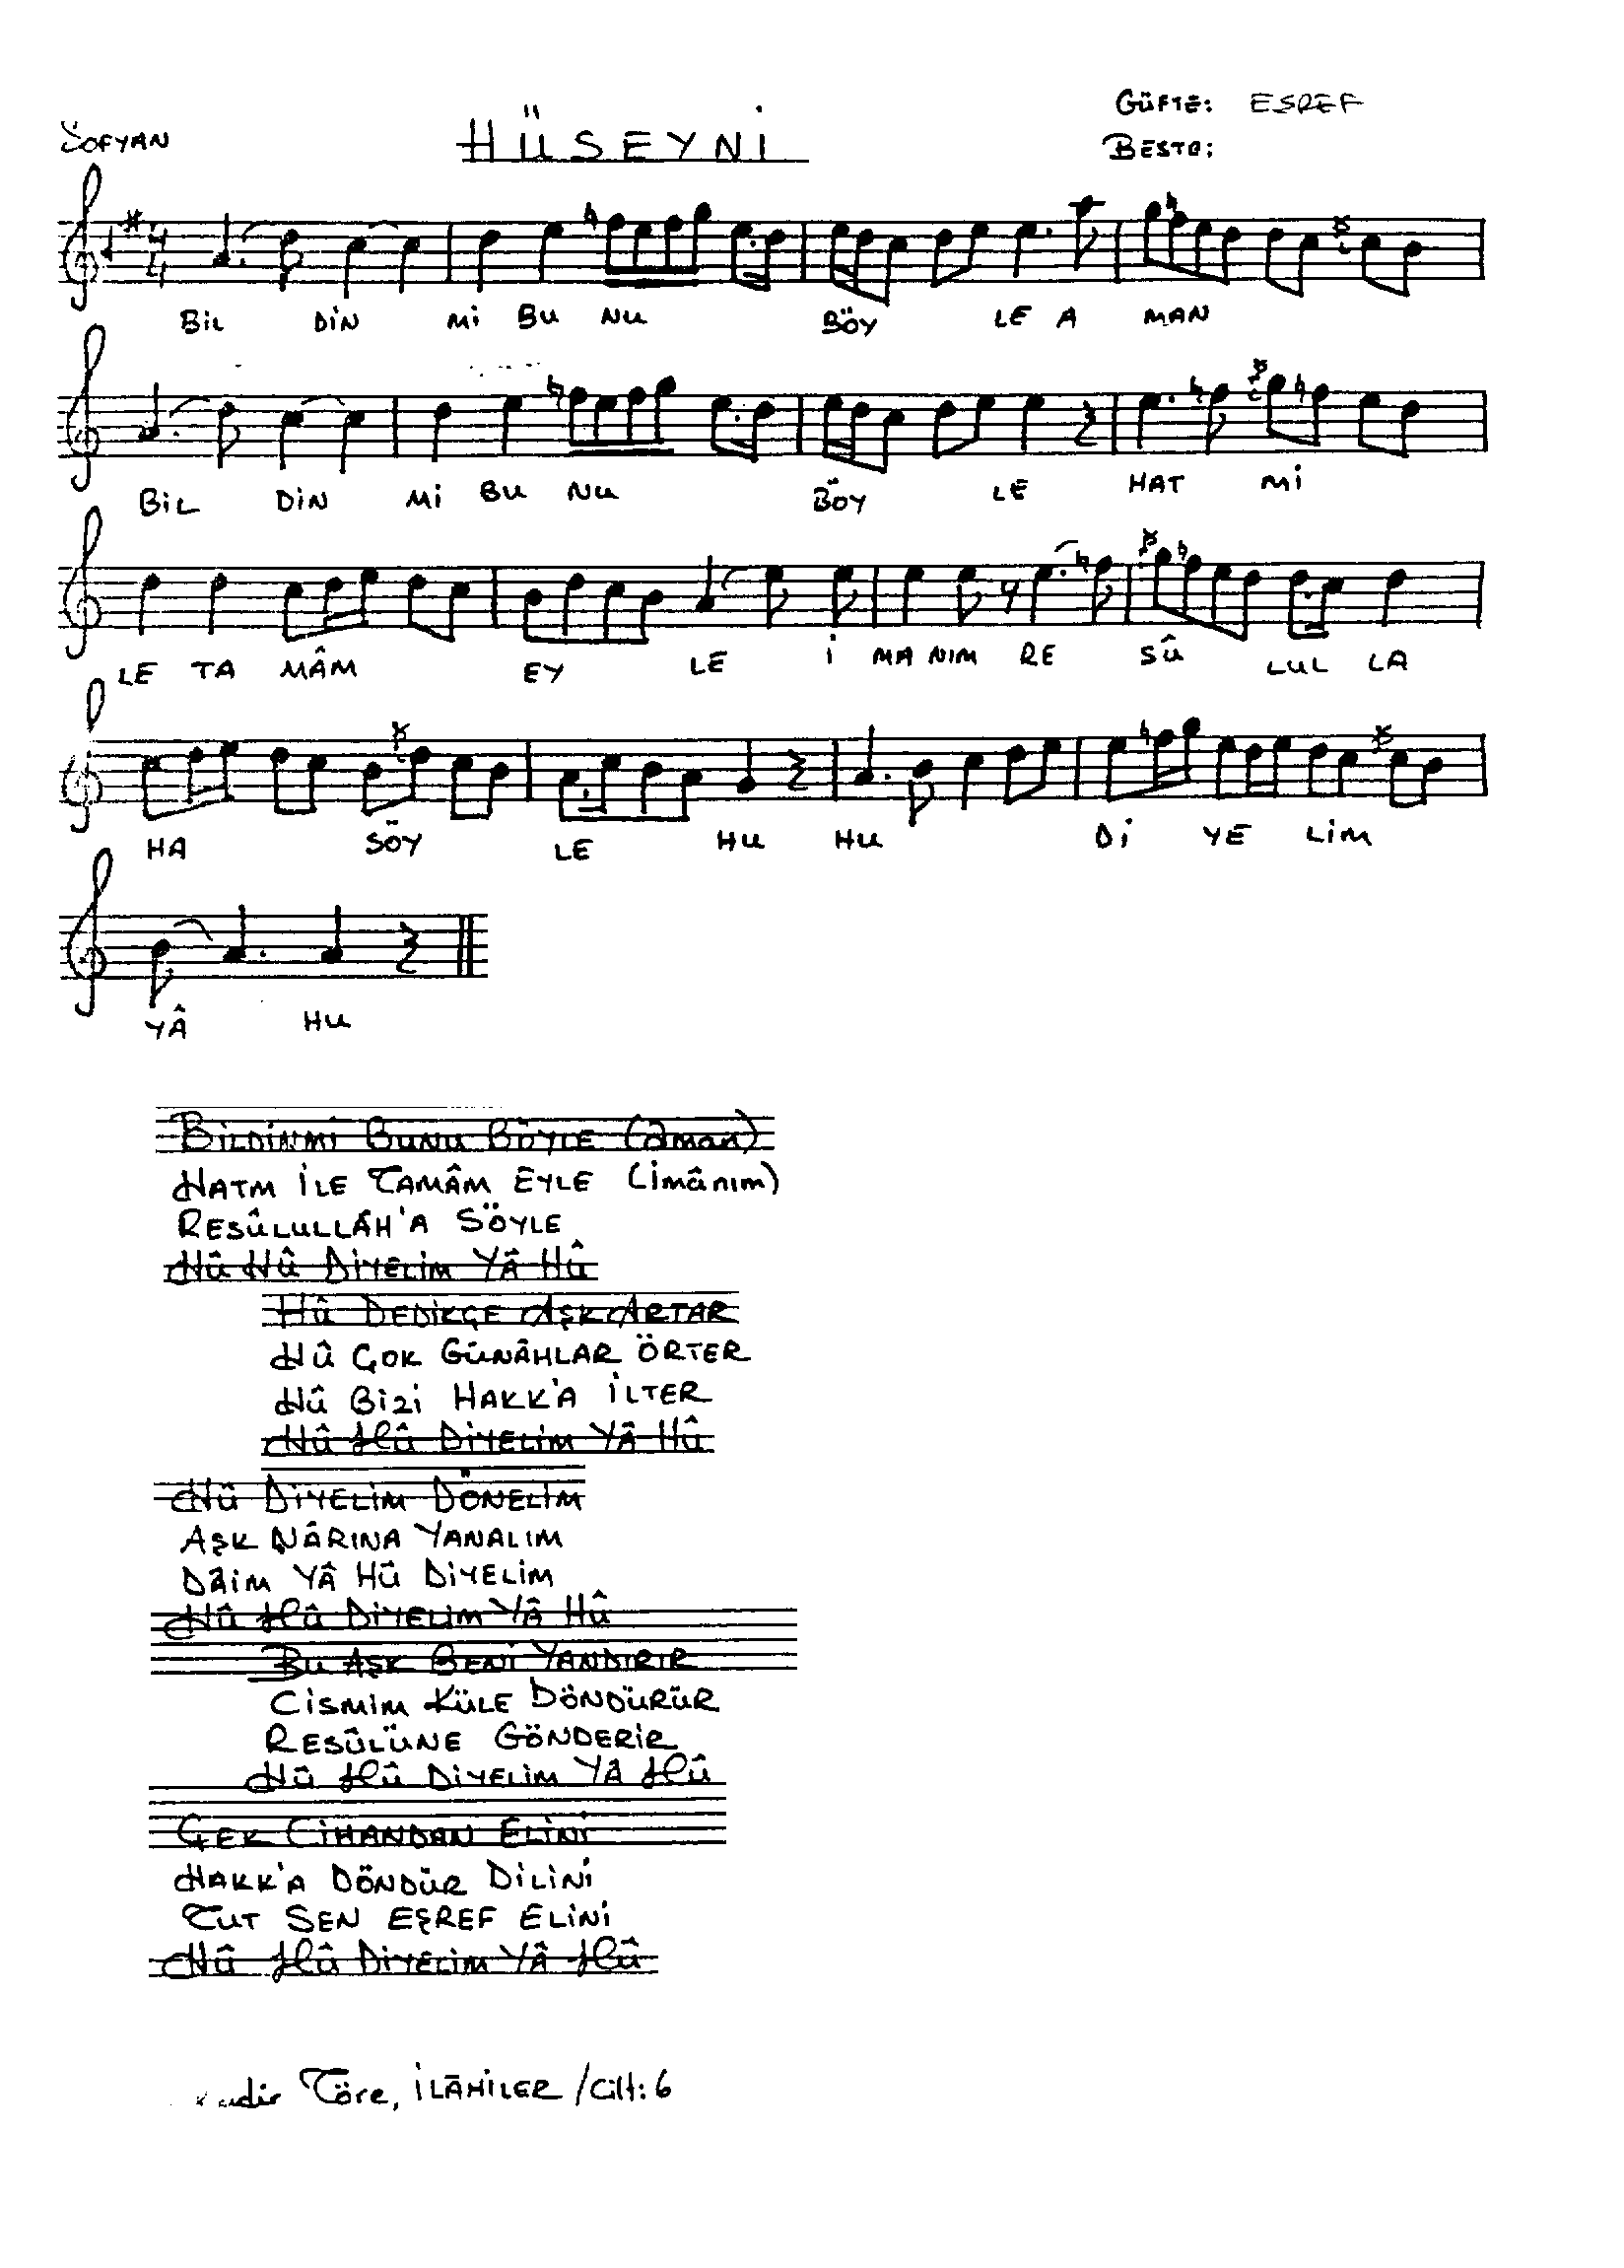 SOFYAN
HÜSEYNİ
GÜFTE: ESREF
BESTE:
4/4
BİL DİN Mİ BU NU BÖY LE A MAN
BİL DİN Mİ BU NU BÖY LE HAT Mİ
LE TA MÂM EY LE İ MA NIM RE SÛ LUL LA
HA SÖY LE HU HU Dİ YE LİM
YÂ HU
BİLDİNMİ BUNU BÖYLE (aman)
HATM İLE TAMÂM EYLE (imânım)
RESÛLULLÂH'A SÖYLE
HÛ HÛ DİYELİM YÂ HÛ
HÛ DEDİKÇE AŞK ARTAR
HÛ ÇOK GÜNÂHLAR ÖRTER
HÛ BİZİ HAKK'A İLTER
HÛ HÛ DİYELİM YÂ HÛ
HÛ DİYELİM DÖNELİM
AŞK NÂRINA YANALIM
DÂİM YÂ HÛ DİYELİM
HÛ HÛ DİYELİM YÂ HÛ
BU AŞK BENİ YANDIRIR
CİSMİM KÜLE DÖNDÜRÜR
RESÛLÜNE GÖNDERİR
HÛ HÛ DİYELİM YÂ HÛ
ÇEK CİHANDAN ELİNİ
HAKK'A DÖNDÜR DİLİNİ
TUT SEN EŞREF ELİNİ
HÛ HÛ DİYELİM YÂ HÛ
Töre, İLÂHİLER / Cilt: 6